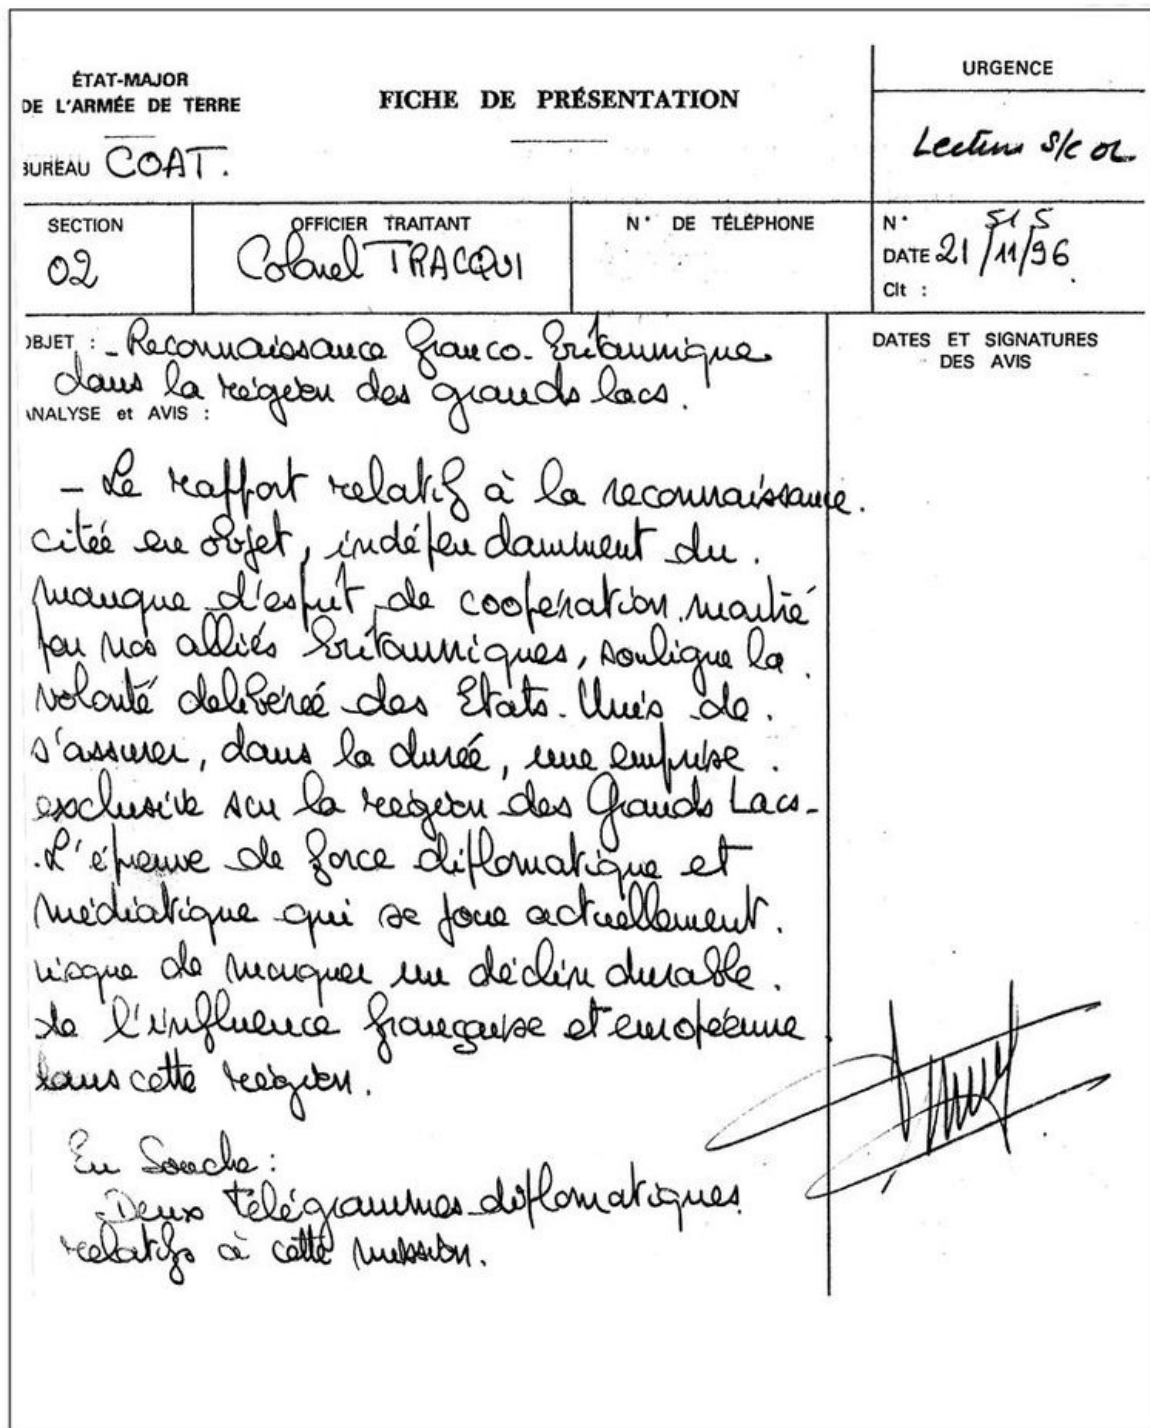 ÉTAT-MAJOR
DE L'ARMÉE DE TERRE
BUREAU COAT.
FICHE DE PRÉSENTATION
URGENCE
Lecture S/C
SECTION
02
OFFICIER TRAITANT
Colonel TRACQUI
N° DE TÉLÉPHONE
N° 515
DATE 21/11/96
Clt :
OBJET : - Reconnaissance franco-britannique
dans la région des grands lacs.
ANALYSE et AVIS :
DATES ET SIGNATURES
DES AVIS
- Le rapport relatif à la reconnaissance
citée en objet, indépendamment du
manque d'esprit de coopération montré
par nos alliés britanniques, souligne la
volonté délibérée des Etats-Unis de
s'assurer, dans la durée, une emprise
exclusive sur la région des Grands Lacs-
L'épreuve de force diplomatique et
médiatique qui se joue actuellement
risque de marquer un déclin durable
de l'influence française et européenne
dans cette région.
En Souche :
Deux télégrammes diplomatiques
relatifs à cette mission.